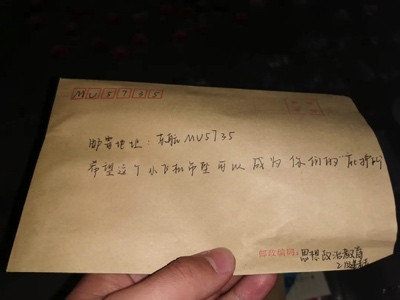 MU5735
邮寄地址：东航MU5735
希望这个小飞机吊坠可以成为你们的"
邮政编码：思想政治教育